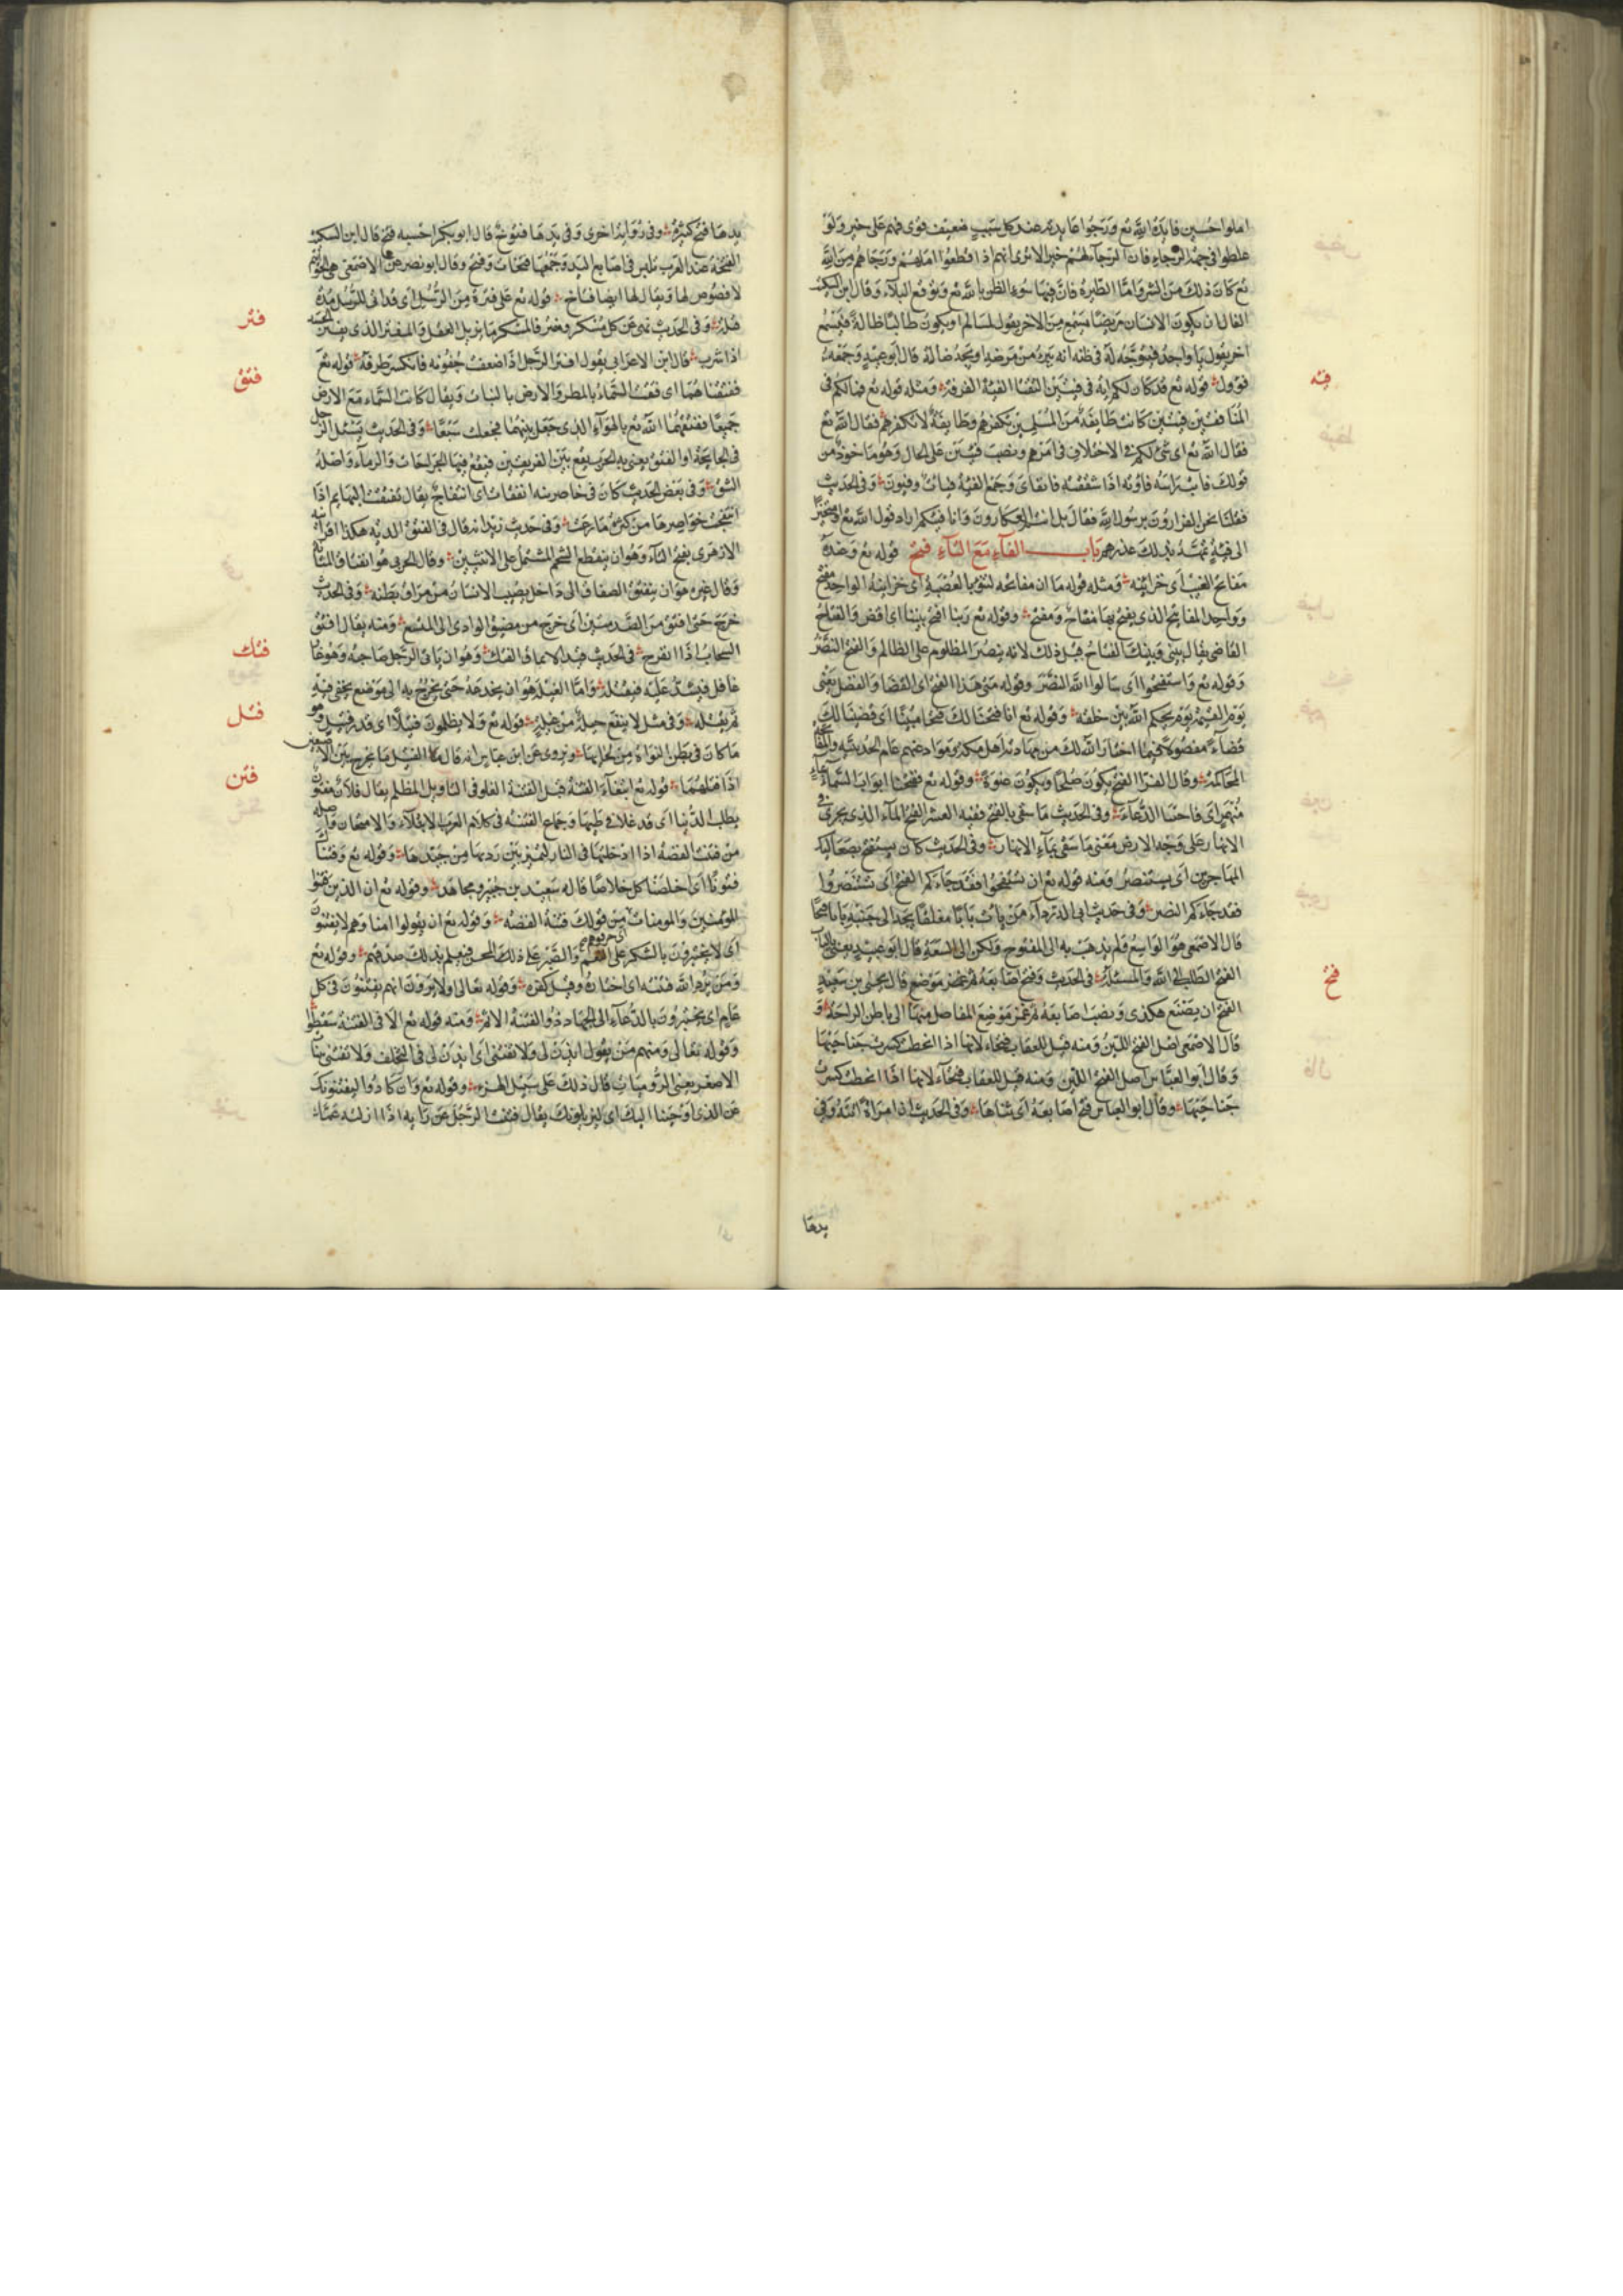 املوا حسين فايدة الله تع ورجوا عايدته عند كل سبب ضعيف قوى فهم على خير ولو
غلطوا فى جهة الرجاء فان الرجآء لهم خير الا ترى انهم اذا قطعوا املهم ورجاهم من الله
تع كان ذلك من الشر واما الطيرة فان فيها سوء الظن بالله تع وتوقع البلآء وقال ابن السكيت
الفال ان يكون الانسان مريضا فيسمع من الاخر يقول يا سالم او يكون طالبا ضالة فيسمع
اخر يقول يا واجد فيتوجه له فى ظنه انه يبرئ من مرضه او يجد ضالة قال ابو عبيد وجمعه
فيه
فؤول قوله تع قد كان لكم اية فى فئتين التقتا الفئة الفرقة ومثله قوله تع فما لكم فى
المنافقين فئتين كانت طايفة من المسلمين تكفرهم وطايفة لا تكفرهم فقال الله تع
فقال الله تع اى شئ لكم فى الاختلاف فى امرهم ونصب فئتين على الحال وهو ماخوذ من
قولك فايت راسه فاوته اذا شققته فانفاى وجمع الفئة فيات وفيون وفى الحديث
فقلنا نحن الفرارون يرسول الله فقال بل انتم العكارون وانا فيتكم اراد قول الله تع او متحيزا
الى فئة يمهد بذلك عذرهم باب الفآء مع التآء فتح قوله تع وعنده
مفاتح الغيب اى خزائنه ومثله قوله ما ان مفاتحه لتنوء بالعصبة اى خزاينه الواحد مفتح
وواحد المفاتيح الذى يفتح بها مفتاح ومفتح وقوله تع ربنا افتح بيننا اى اقض والفتاح
القاضى يقال بينى وبينك الفتاح وقيل ذلك لانه ينصر المظلوم على الظالم والفتح النصر
وقوله تع واستفتحوا اى سالوا الله النصر وقوله متى هذا الفتح اى القضا والفصل يعنى
يوم القيمة يوم يحكم الله بين خلقه وقوله تع انا فتحنا لك فتحا مبينا اى قضينا لك
قضآء مفصولا فيما اختار الله لك من مهادنة اهل مكة وموادعتهم عام الحديبية والمفاتحة
المحاكمة وقال الفرا الفتح يكون صلحا ويكون عنوة وقوله تع ففتحنا ابواب السمآء بمآء
منهمر اى فاجبنا الدعآء وفى الحديث ما سقى بالفتح ففيه العشر الفتح المآء الذى يجرى فى
الانهار على وجه الارض معنى ما سقى بمآء الانهار وفى الحديث كان يستفتح بصعاليك
المهاجرين اى يستنصر ومنه قوله تع ان تستفتحوا فقد جآءكم الفتح اى تستنصروا
فقد جآءكم النصر وفى حديث ابى الدردآء من يات بابا مغلقا يجد الى جنبه بابا فتحا
قال الاصمعى هو الواسع فلم يذهب به الى المفتوح ولكن الى السعة قال ابو عبيد يعنى بالباب
فتخ
الفتح الطلب الى الله والمسئلة فى الحديث وفتخ اصابعه ثم غمز موضع قال يحيى بن سعيد
الفتخ ان يصنع هكذى ونصب اصابعه ثم غمز موضع المفاصل منها الى باطن الراحة و
قال الاصمعى اصل الفتخ اللين ومنه قيل للعقاب فتخاء لانها اذا انحطت كسرت جناحيها
وقال ابو العباس اصل الفتخ اللين ومنه قيل للعقاب فتخآء لانها اذا انحطت كسرت
جناحيها وقال ابو العباس فتخ اصابعه اى ثناها وفى الحديث ان امراة اتته وفى
يدها
يدها فتخ كثيرة وفى رواية اخرى وفى يدها فتوخ قال ابو بكر احسبه فتخ قال ابن السكيت
الفتخة عند العرب تلبس فى اصابع اليد وجمعها فتخات وفتخ وقال ابو نصر عن الاصمعى هى الخواتيم
لا فصوص لها ويقال لها ايضا فتاخ قوله تع على فترة من الرسل اى قد اتى للرسل مدة
فتر
قبله وفى الحديث نهى عن كل مسكر ومفتر فالمسكر ما يزيل العقل والمفتر الذى يفتر الجسد
اذا شرب قال ابن الاعرابى يقول افتر الرجل اذا ضعفت جفونه فانكسر طرفه قوله تع
فتق
ففتقناهما اى فتقت السماء بالمطر والارض بالنبات ويقال كانت السماء مع الارض
جميعا ففتقهما الله تع بالهوآء الذى جعل بينهما فجعلت سبعا وفى الحديث يسئل الرجل
فى الجايحة او الفتق يعنى به الحرب يقع بين الفريقين فيقع فيها الجراحات والدمآء واصله
الشق وفى بعض الحديث كان فى خاصرته انفتاق اى انتفاخ يقال تفتقت البهايم اذا
انتفخت خواصرها من كثرة ما رعت وفى حديث زيد انه قال فى الفتق الدية هكذا اقرانيه
الازهرى بفتح التآء وهو ان ينقطع اللحم المشتمل على الانثيين وقال الحربى هو انفتاق المثانة
وقال غيره هو ان ينفتق الصفاق الى داخل يصيب الانسان من مراق بطنه وفى الحديث
خرج حتى افتق من الصدمتين اى خرج من مضيق الوادى الى المتسع ومنه يقال افتق
فتك
السحاب اذا انفرج فى الحديث قيد الايمان الفتك وهو ان ياتى الرجل صاحبه وهو غار
غافل فيشد عليه فيقتله واما الغيلة هو ان يخدعه حتى يخرج به الى موضع يخفى فيه
فتل
ثم يقتله وفى مثل لا ينفع حيلة من غيلة قوله تع ولا يظلمون فتيلا اى قدر فتيل وهو
ما كان فى بطن النواة من لحايها ويروى عن ابن عباس انه قال الفتيل ما يخرج بين الاصبعين
فتن
اذا فتلتهما قوله تع ابتغآء الفتنة قيل الفتنة الغلو فى التاويل المظلم يقال فلان مفتون
بطلب الدنيا اى قد غلا فى طلبها وجماع الفتنة فى كلام العرب الابتلآء والامتحان واصله
من فتنت الفضة اذا ادخلتها فى النار لتميز بين رديها من جيدها وقوله تع وفتناك
فتونا اى اخلصناك اخلاصا قاله سعيد بن جبير ومجاهد وقوله تع ان الذين فتنوا
المؤمنين والمومنات من قولك فتنة الفضة وقوله تع ان يقولوا امنا وهم لا يفتنون
اى لا يختبرون بالشكر على النعم والصبر على ذلك المحن فيعلم بذلك صدقهم وقوله تع
ومن يرد الله فتنته اى اختباره وقيل كفره وقوله تعالى اولا يرون انهم يفتنون فى كل
عام اى يختبرون بالدعآء الى الجهاد ذو الفتنة الاثم ومنه قوله تع الا فى الفتنة سقطوا
وقوله تعالى ومنهم من يقول ايذن لى ولا تفتنى اى ايذن لى فى التخلف ولا تفتنى ببنات
الاصفر يعنى الروميات قال ذلك على سبيل الهزء وقوله تع وان كادوا ليفتنونك
عن الذى اوحينا اليك اى ليزيلونك يقال فتنت الرجل عن رايه اذا ازلته عما